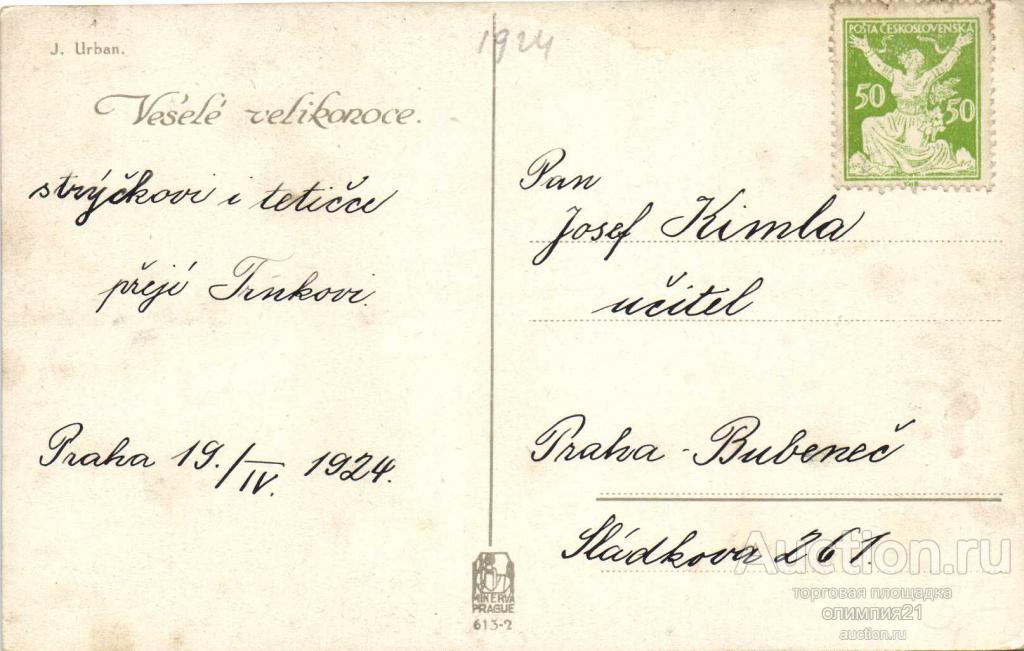 J. Urban.
Veselé velikonoce.
strýčkovi i tetičce
přejí Trnkovi.
Praha 19./IV. 1924.
1924
POŠTA ČESKOSLOVENSKÁ
50 50
Pan
Josef Kimla
učitel
Praha - Bubeneč
Sládkova 261.
MINERVA
PRAGUE
613-2
Auction.ru
торговая площадка
олимпия21
auction.ru